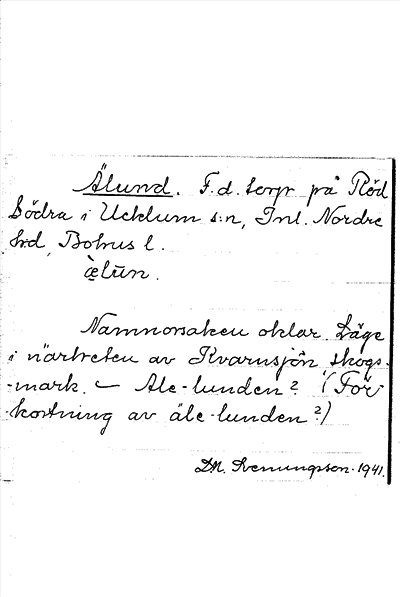 Älund. F.d. torp på Röd
Södra i Ucklum s:n, Inl. Nordre
hd, Bohus l.
æ̀lūn.
Namnorsaken oklar. Läge
i närheten av Kvarnsjön skogs-
-mark. – Ale-lunden? (För-
-kortning av äle-lunden?)
D.M. Svenungsson. 1941.